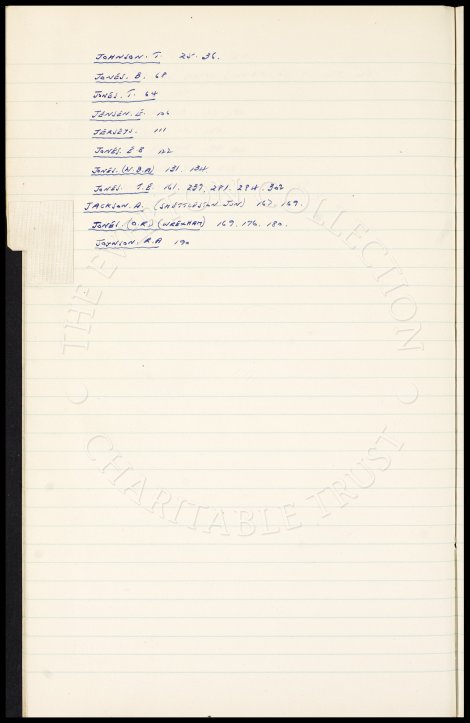 JOHNSON. T. 25. 36.
JONES. B. 68
JONES. T. 64
JENSEN. E. 106
JERSEYS. 111
JONES. E B 122
JONES. (N.B.A) 131. 134
JONES. T.E. 161. 237. 281. 284. 302
JACKSON. A. (SHUTTLEWORTH. JON) 167. 169.
JONES. (O.R) (WREXHAM) 169. 176. 180.
JOHNSON. R.A 190
THE COLLECTION
CHARITABLE TRUST